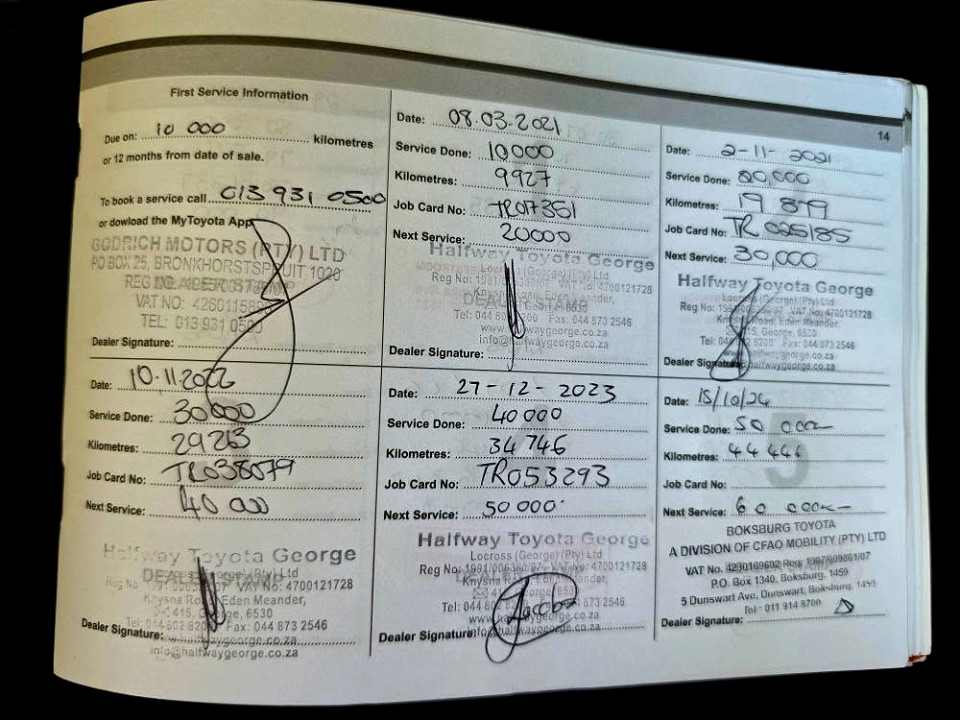 First Service Information
Due on: 10 000 kilometres
or 12 months from date of sale.
To book a service call 013 931 0500
or dowload the MyToyota App
GODRICH MOTORS (PTY) LTD
PO BOX 25, BRONKHORSTSPRUIT 1020
VAT NO:
TEL: 013 931 0500
Dealer Signature:
Date: 08.03.2021
Service Done: 10000
Kilometres: 9927
Job Card No: TR017351
Next Service: 20000
Halfway Toyota George
Locross (George) (Pty) Ltd
Reg No: VAT No: 4700121728
Eden Meander,
Fax: 044 873 2546
info@halfwaygeorge.co.za
Dealer Signature:
14
Date: 2-11-2021
Service Done: 20,000
Kilometres: 19 879
Job Card No: TR 025185
Next Service: 30,000
Halfway Toyota George
Locross (George) (Pty) Ltd
Reg No: VAT No: 4700121728
Road, Eden Meander,
George, 6530
Fax: 044 873 2546
Dealer Signature
Date: 10.11.2022
Service Done: 30 000
Kilometres: 29213
Job Card No: TR038079
Next Service: 40 000
Halfway Toyota George
VAT No: 4700121728
Knysna Road, Eden Meander,
415, George, 6530
Fax: 044 873 2546
Dealer Signature:
info@halfwaygeorge.co.za
Date: 27-12-2023
Service Done: 40 000
Kilometres: 34 746
Job Card No: TR053293
Next Service: 50 000
Halfway Toyota George
Locross (George) (Pty) Ltd
Reg No: 1991/006360/07 VAT No: 4700121728
Knysna Road, Eden Meander,
415, George, 6530
Fax: 044 873 2546
Dealer Signature
Date: 15/10/24
Service Done: 50 000
Kilometres: 44 446
Job Card No:
Next Service: 60 000
BOKSBURG TOYOTA
A DIVISION OF CFAO MOBILITY (PTY) LTD
VAT No. 4230169602 Reg.
P.O. Box 1340, Boksburg, 1459
5 Dunswart Ave, Dunswart, Boksburg, 1459
Tel: 011 914 8700
Dealer Signature: